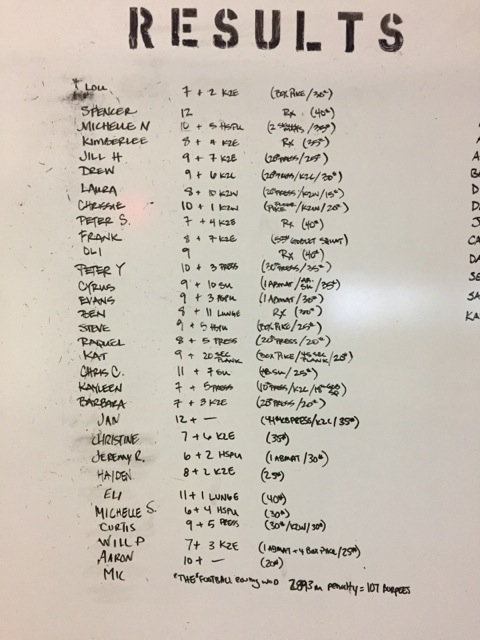 RESULTS
LOU 7 + 2 K2E (BOX PIKE/30#)
SPENCER 12 Rx (40#)
MICHELLE N 10 + 5 HSPU (2 /35#)
KIMBERLEE 8 + 4 K2E Rx (35#)
JILL H 9 + 7 K2E (20#PRESS/25#)
DREW 9 + 6 K2E (20#PRESS/K2C/30#)
LAURA 8 + 10 K2W (20#PRESS/K2W/15#)
CHRSSIE 10 + 1 K2W (PIKE/K2W/20#)
PETER S. 7 + 4 K2E Rx (40#)
FRANK 8 + 7 K2E (55# GOBLET SQUAT)
OLI 9 Rx (40#)
PETER Y 10 + 3 PRESS (30#PRESS/35#)
CYRUS 9 + 10 SU (1 ABMAT/ SU/35#)
EVANS 9 + 3 HSPU (1 ABMAT/30#)
BEN 8 + 11 LUNGE Rx (30#)
STEVE 9 + 5 HSPU (BOX PIKE/25#)
RAQUEL 8 + 5 PRESS (20#PRESS/20#)
KAT 9 + 20 SEC PLANK (BOX PIKE/45 SEC PLANK/20#)
CHRIS C. 11 + 7 SU (SU/25#)
KAYLEEN 7 + 5 PRESS (10#PRESS/K2C/)
BARBARA 7 + 3 K2E (20#PRESS/20#)
JAN 12 + — (PRESS/K2C/35#)
CHRISTINE 7 + 6 K2E (35#)
JEREMY R. 6 + 2 HSPU (1 ABMAT/30#)
HAIDEN 8 + 2 K2E (25#)
ELI 11 + 1 LUNGE (40#)
MICHELLE S. 6 + 4 HSPU (30#)
CURTIS 9 + 5 PRESS (30#/K2W/30#)
WILL P 7 + 3 K2E (1 ABMAT + 4 BOX PIKE/25#)
AARON 10 + — (20#)
MIC "THE" FOOTBALL Rowing WOD 2893m penalty = 107 BURPEES